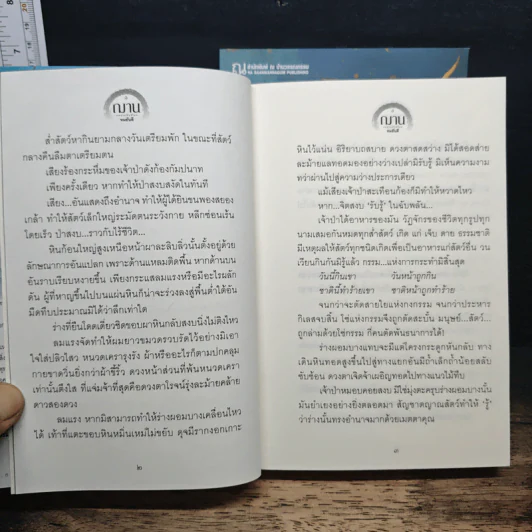 ณ สำนักพิมพ์ ณ บ้านวรรณกรรม
NA BAANWANNAGAM PUBLISHING
ฌาน
ล่ำสัตว์หากินยามกลางวันเตรียมพัก ในขณะที่สัตว์
กลางคืนลืมตาเตรียมตน
เสียงร้องกระหึ่มของเจ้าป่าดังก้องกัมปนาท
เพียงครั้งเดียว หากทำให้ป่าสงบสงัดในทันที
เสียง...อันแสดงถึงอำนาจ ทำให้ไก่ป่าผู้ยืนขันบนพองสยอง
เกล้า ทำให้สัตว์เล็กใหญ่ระมัดตนระวังกาย หลีกซ่อนเร้น
โดยเร็ว ป่าสงบ...ราวกับไร้ชีวิต...
หินก้อนใหญ่สูงเหนือหน้าผาละลิบลิ่วนั้นตั้งอยู่ด้วย
ลักษณาการอันแปลก เพราะด้านแหลมติดพื้น หากด้านบน
อันราบเรียบหงายขึ้น เพียงกระแสลมแรงหรือมีอะไรผลัก
ดัน ผู้ที่หาญขึ้นไปบนแผ่นหินก็น่าจะร่วงลงสู่พื้นต่ำใต้อัน
มืดทึบประมาณมิได้ว่าลึกเท่าใด
ร่างที่ยืนโดดเดี่ยวชิดขอบผาหินกลับสงบนิ่งไม่ติงไหว
ลมแรงจัดทำให้ผมยาวขมวดรวบรัดไว้อย่างมิเอา
ใจใส่ปลิวไสว หนวดเครารุงรัง ผ้าหรืออะไรก็ตามปกคลุม
กายขาดวิ่นยิ่งกว่าผ้าขี้ริ้ว ดวงหน้าส่วนที่พ้นหนวดเครา
เท่านั้นตึงใส ที่แจ่มจ้าที่สุดคือดวงตาโรจน์รุ่งละม้ายคล้าย
ดาวสองดวง
ลมแรง หากมิสามารถทำให้ร่างผอมบางเคลื่อนไหว
ได้ เท้าที่แตะขอบหินหมิ่นเหม่ไม่ขยับ ดุจมีรากงอกเกาะ
๒
ฌาน
หินไว้แน่น อิริยาบถสบาย ดวงตาสดสว่าง มิได้สอดส่าย
ละม้ายแลทอดมองอย่างว่างเปล่ามิรับรู้ มิเห็นความงาม
ทว่าผ่านไปสู่ความว่างประการเดียว
แม้เสียงเจ้าป่าสะเทือนก้องก็มิทำให้หวาดไหว
หาก...จิตสงบ 'รับรู้' ในฉับพลัน...
เจ้าป่าได้อาหารของมัน วัฏจักรของชีวิตทุกรูปทุก
นามเสมอกันหมดทั้งสูงทั้งต่ำ เกิด แก่ เจ็บ ตาย ธรรมชาติ
มีเหตุผลให้สัตว์ทุกชนิดเกิดเพื่อเป็นอาหารแก่สัตว์อื่น วน
เวียนกินกันมิรู้แล้ว กรรม...แห่งการกระทำมิสิ้นสุด
วันนี้กินเขา วันหน้าถูกกิน
ชาตินี้ทำร้ายเขา ชาติหน้าถูกทำร้าย
จนกว่าจะตัดสายใยแห่งกงกรรม จนกว่าประหาร
กิเลสจบสิ้น ใช่แห่กรรมจึงถูกตัดสะบั้น มนุษย์...สัตว์...
ถูกล่ามด้วยโซ่กรรม กี่คนตัดพันธนาการได้!
ร่างผอมบางแทบจะมีแค่โครงกระดูกหันกลับ ทาง
เดินหินทอดสูงขึ้นไปสู่ทางแยกอันมีถ้ำเล็กถ้ำน้อยสลับ
ซับซ้อน ดวงตาเจิดจ้าเผอิญทอดไปทางแนวไม้ทึบ
เจ้าป่าหมอบคอยสงบ มิใช่มุ่งตะครุบร่างผอมบางนั้น
มันย่างเยื้องอย่างยิ่งตลอดมา สัญชาตญาณสัตว์ทำให้ 'รู้'
ว่าร่างนั้นทรงอำนาจมากด้วยเมตตาคุณ
๓